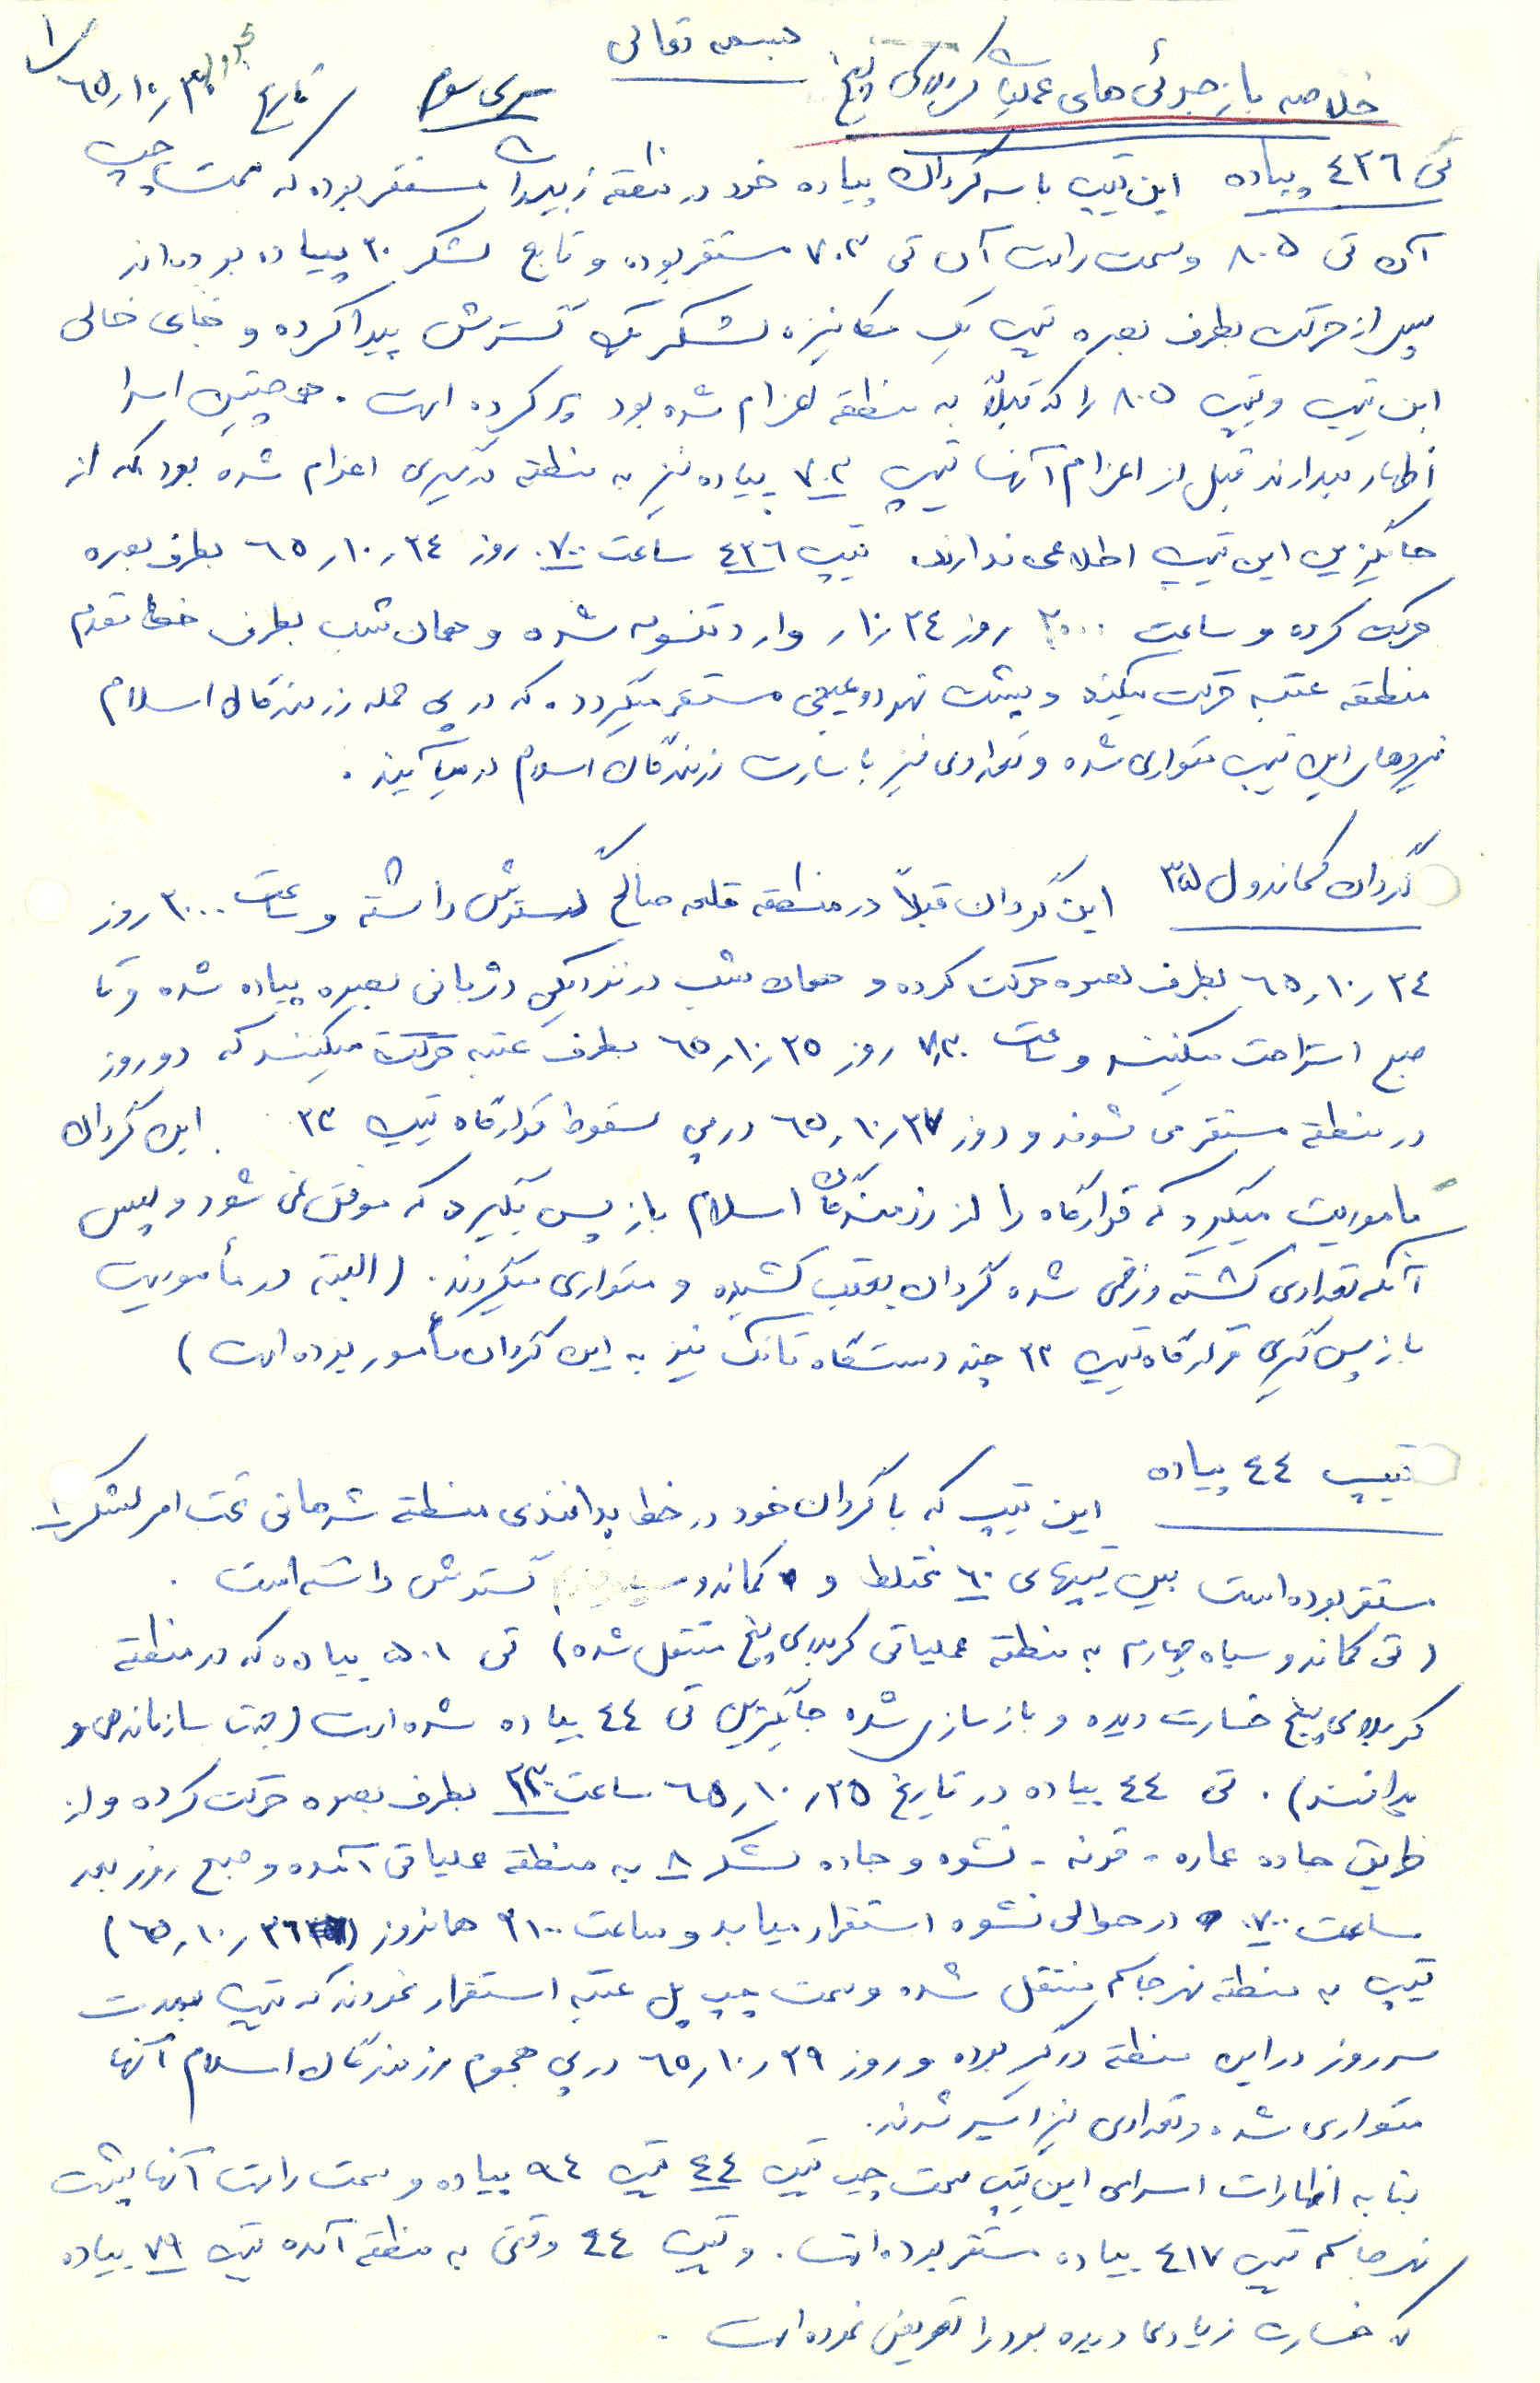 بسمه تعالی
خلاصه بازجوئی‌های عملیات کربلای پنج سری سوم تاریخ ٦٥٫١٠٫٣٠
تی ٤٣٦ پیاده این تیپ با سه گردان پیاده خود در منطقه زبیدات مستقر بوده که سمت چپ
آن تی ٨٠٥ و سمت راست آن تی ٧٠٣ مستقر بوده و تابع لشکر ٢٠ پیاده بوده‌اند
پس از حرکت بطرف بصره تیپ یک مکانیزه لشکر یک گسترش پیدا کرده و جای خالی
این تیپ و تیپ ٨٠٥ را که قبلاً به منطقه اعزام شده بود پر کرده است . همچنین اسرا
اظهار میدارند قبل از اعزام آنها تیپ ٧٠٣ پیاده نیز به منطقه درگیری اعزام شده بود که از
جایگزین این تیپ اطلاعی ندارند. تیپ ٤٣٦ ساعت ٠٧٠٠ روز ٦٥٫١٠٫٢٤ بطرف بصره
حرکت کرده و ساعت ٢٠٠٠ روز ١٠٫٢٤ وارد تنومه شده و همان شب بطرف خط مقدم
منطقه عتبه حرکت میکند و پشت نهر دوعیجی مستقر میگردد. که در پی حمله رزمندگان اسلام
نیروهای این تیپ متواری شده و تعدادی نیز باسارت رزمندگان اسلام در میآیند .
گردان کماندو ل ٣٥ این گردان قبلاً در منطقه قلعه صالح گسترش داشته و ساعت ٢٠٠٠ روز
٦٥٫١٠٫٢٤ بطرف بصره حرکت کرده و همان شب در نزدیکی دژبانی بصره پیاده شده و تا
صبح استراحت میکنند و ساعت ٧٫٣٠ روز ٦٥٫١٠٫٢٥ بطرف عتبه حرکت میکنند که دو روز
در منطقه مستقر می شوند و روز ٦٥٫١٠٫٢٧ در پی سقوط قرارگاه تیپ ٢٣ این گردان
مأموریت میگیرد که قرارگاه را از رزمندگان اسلام باز پس بگیرد که موفق نمی شود و پس
آنکه تعدادی کشته و زخمی شده گردان بعقب کشیده و متواری میگردند . (البته در مأموریت
باز پس گیری قرارگاه تیپ ٢٣ چند دستگاه تانک نیز به این گردان مأمور بوده است)
تیپ ٤٤ پیاده این تیپ که با گردان خود در خط پدافندی منطقه شرهانی تحت امر لشکر ١
مستقر بوده است بین تیپهای ٦٠ مختلط و کماندو گسترش داشته است .
(تی کماندو سپاه چهارم به منطقه عملیاتی کربلای پنج منتقل شده) تی ٥٠١ پیاده که در منطقه
کربلای پنج خسارت دیده و بازسازی شده جایگزین تی ٤٤ پیاده شده است (جهت سازماندهی و
پدافند) . تی ٤٤ پیاده در تاریخ ٦٥٫١٠٫٢٥ ساعت ٢٣٠٠ بطرف بصره حرکت کرده و از
طریق جاده عماره - قرنه - نشوه و جاده لشکر ٨ به منطقه عملیاتی آمده و صبح روز بعد
ساعت ٠٧٠٠ در حوالی نشوه استقرار مییابد و ساعت ٢١٠٠ همانروز (٦٥٫١٠٫٢٦)
تیپ به منطقه نهر جاسم منتقل شده و سمت چپ پل عتبه استقرار نمودند که تیپ بمدت
سه روز در این منطقه درگیر بوده و روز ٦٥٫١٠٫٢٩ در پی هجوم رزمندگان اسلام آنها
متواری شده و تعدادی نیز اسیر شدند.
بنا به اظهارات اسرای این تیپ سمت چپ تیپ ٤٤ تیپ ٩٤ پیاده و سمت راست آنها پشت
نهر جاسم تیپ ٤١٧ پیاده مستقر بوده است. و تیپ ٤٤ وقتی به منطقه آمده تیپ ٧٩ پیاده
که خسارت زیادی دیده بود را تعویض نموده است .